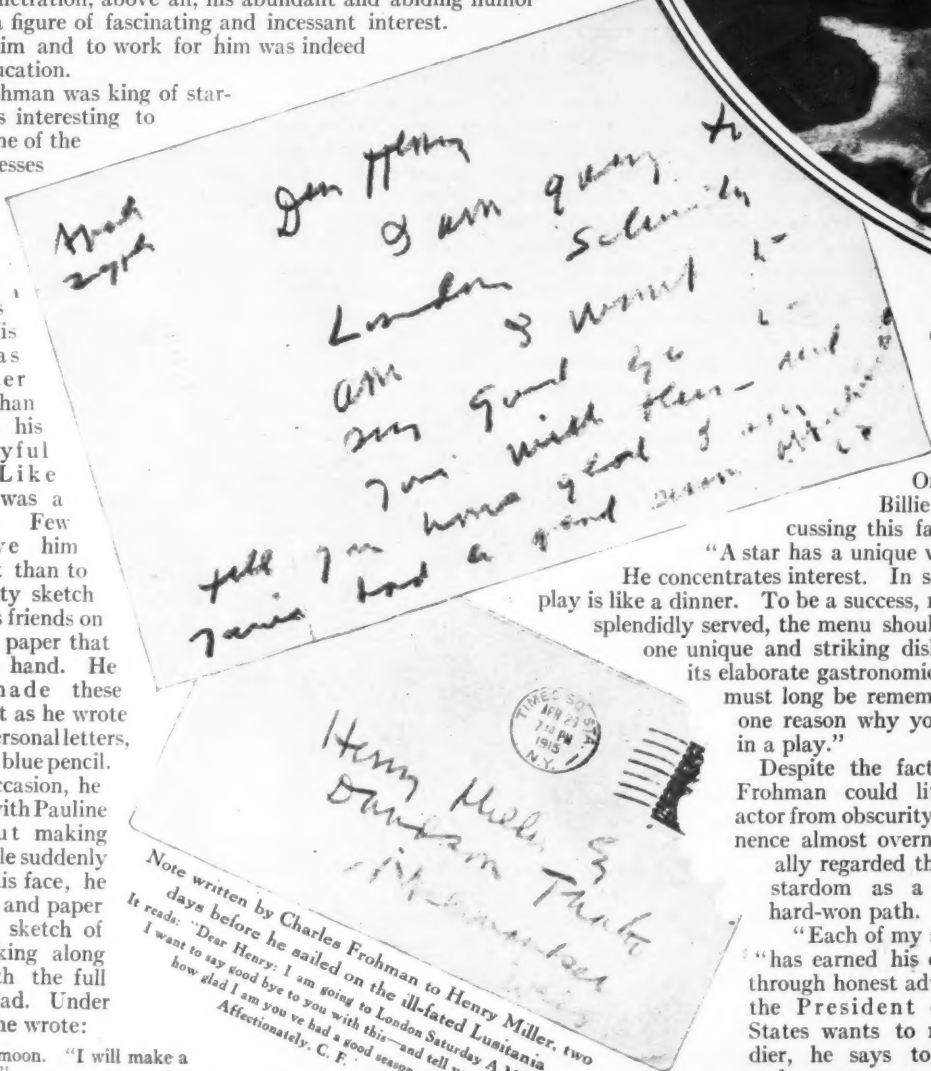 netration, above all, his abundant and abiding humor
figure of fascinating and incessant interest.
im and to work for him was indeed
ucation.
hman was king of star-
s interesting to
ne of the
esses
s
is
as
er
han
his
yful
Like
was a
Few
ve him
t than to
ty sketch
s friends on
paper that
hand. He
made these
t as he wrote
ersonal letters,
blue pencil.
ccasion, he
ith Pauline
ut making
le suddenly
is face, he
and paper
sketch of
king along
th the full
ad. Under
ne wrote:
moon. "I will make a
Dear Henry
I am going to
London Saturday
am I want to
say good bye to
you with this—and
tell you how glad I am
you've had a good season
TIMES SQ. STA.
APR 29
7 30 PM
1915
N.Y.
Henry Miller Esq
Note written by Charles Frohman to Henry Miller, two
days before he sailed on the ill-fated Lusitania
It reads: "Dear Henry: I am going to London Saturday A.M.
I want to say good bye to you with this—and tell
how glad I am you've had a good season
Affectionately. C. F.
Billie
cussing this fa
"A star has a unique v
He concentrates interest. In s
play is like a dinner. To be a success,
splendidly served, the menu shoul
one unique and striking dis
its elaborate gastronomic
must long be remem
one reason why yo
in a play."
Despite the fact
Frohman could li
actor from obscurity
nence almost overn
ally regarded th
stardom as a
hard-won path.
"Each of my
"has earned his
through honest ad
the President
States wants to
dier, he says to